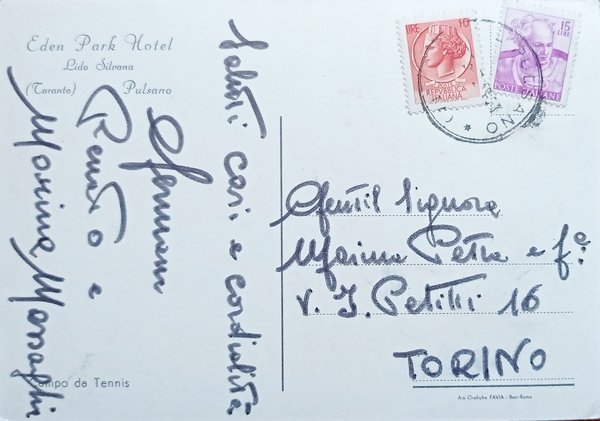 Eden Park Hotel
Lido Silvana
(Taranto) Pulsano
Saluti cari e cordialità
Renato e
Marina
Campo de Tennis
LIRE 10
REPVBBLICA
ITALIANA
15
LIRE
POSTE ITALIANE
Gentil Signora
Petra e f.a
v. I. Petitti 16
TORINO
Arti Grafiche FAVIA - Bari-Roma